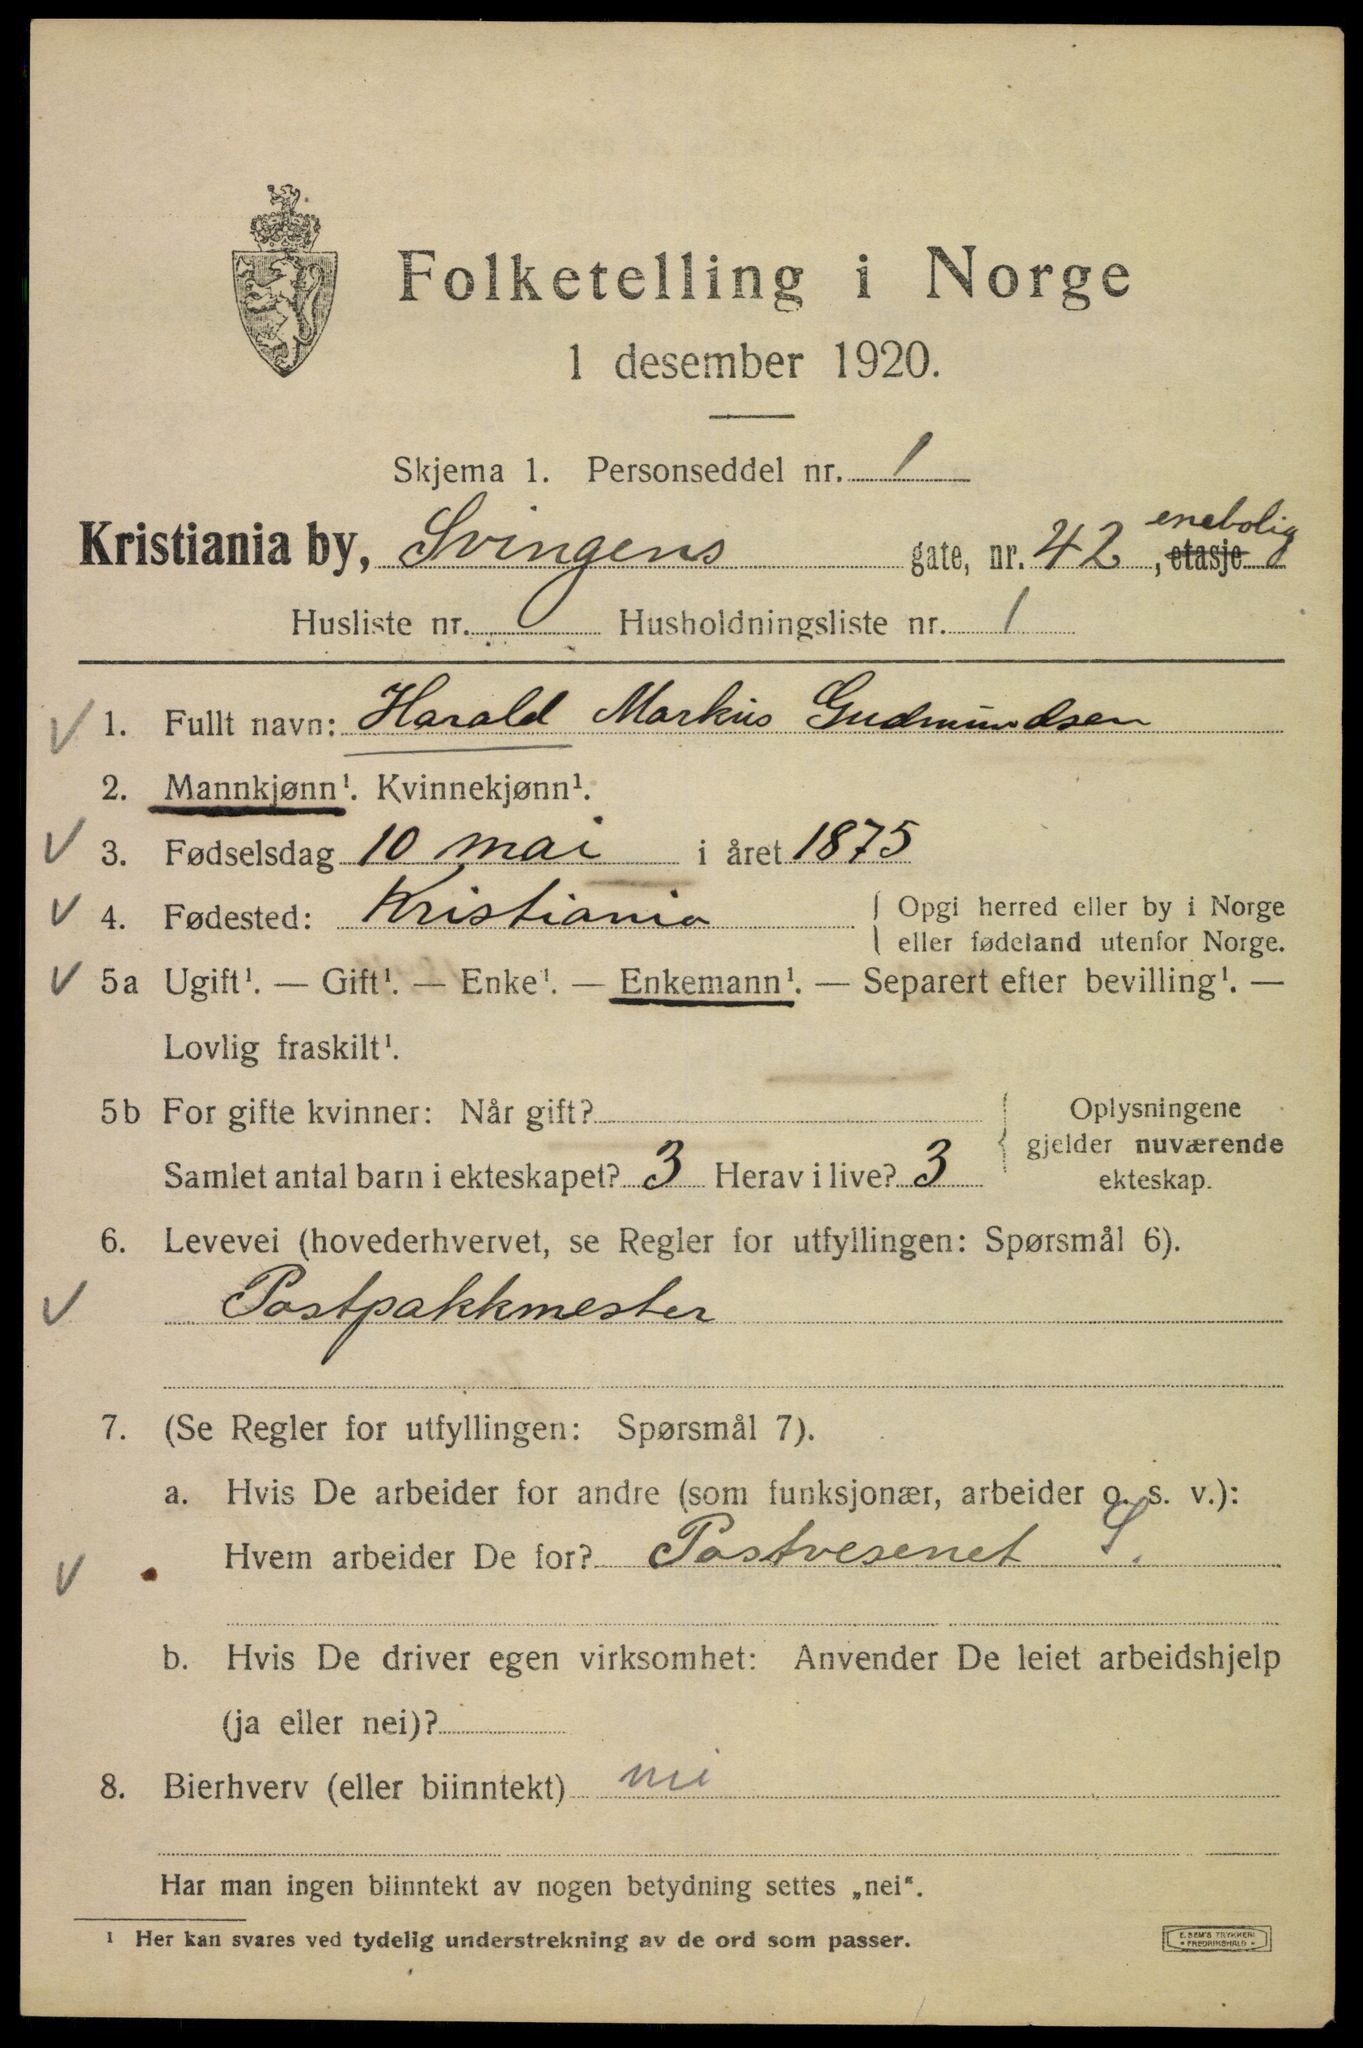 Folketelling i Norge
1 desember 1920.
Skjema 1. Personseddel nr. 1
Kristiania by, Svingens gate, nr. 42 enebolig, etasje
Husliste nr. Husholdningsliste nr. 1
1. Fullt navn: Harald Markus Gudmundsen
2. Mannkjønn¹. Kvinnekjønn¹.
3. Fødselsdag 10 mai i året 1875
4. Fødested: Kristiania { Opgi herred eller by i Norge
eller fødeland utenfor Norge.
5a Ugift¹. — Gift¹. — Enke¹. — Enkemann¹. — Separert efter bevilling¹. —
Lovlig fraskilt¹.
5b For gifte kvinner: Når gift?
Samlet antal barn i ekteskapet? 3 Herav i live? 3
{ Oplysningene
gjelder nuværende
ekteskap.
6. Levevei (hovederhvervet, se Regler for utfyllingen: Spørsmål 6).
Postpakkmester
7. (Se Regler for utfyllingen: Spørsmål 7).
a. Hvis De arbeider for andre (som funksjonær, arbeider o. s. v.):
Hvem arbeider De for? Postvesenet S.
b. Hvis De driver egen virksomhet: Anvender De leiet arbeidshjelp
(ja eller nei)?
8. Bierhverv (eller biinntekt) nei
Har man ingen biinntekt av nogen betydning settes „nei".
¹ Her kan svares ved tydelig understrekning av de ord som passer.
E. SEM'S TRYKKERI
• FREDRIKSHALD •